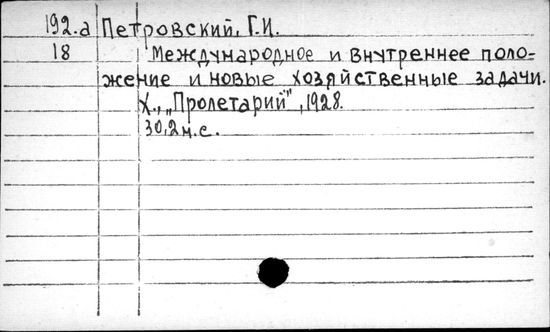 192.а Петровский, Г.И.
18 Международное и внутреннее поло=
жение и новые хозяйственные задачи.
Х., „Пролетарий", 1928.
30,2н.с.